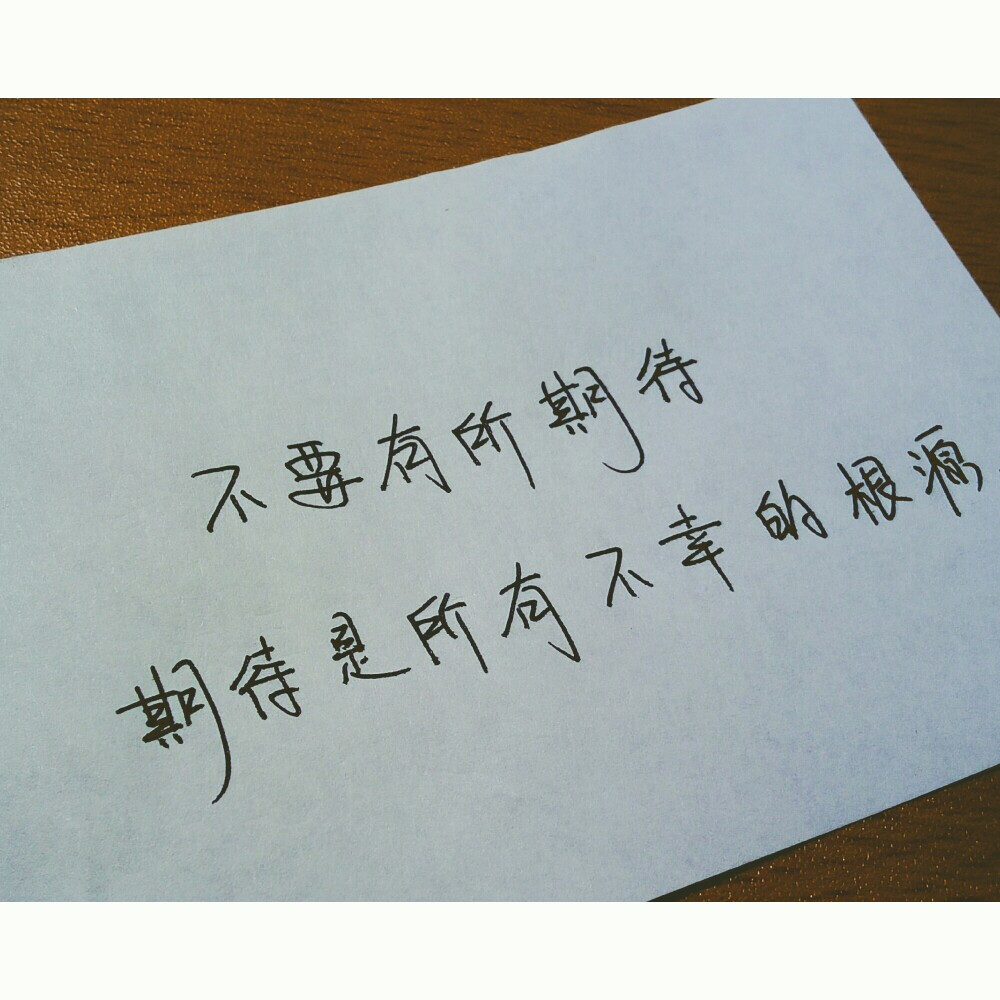 不要有所期待
期待是所有不幸的根源